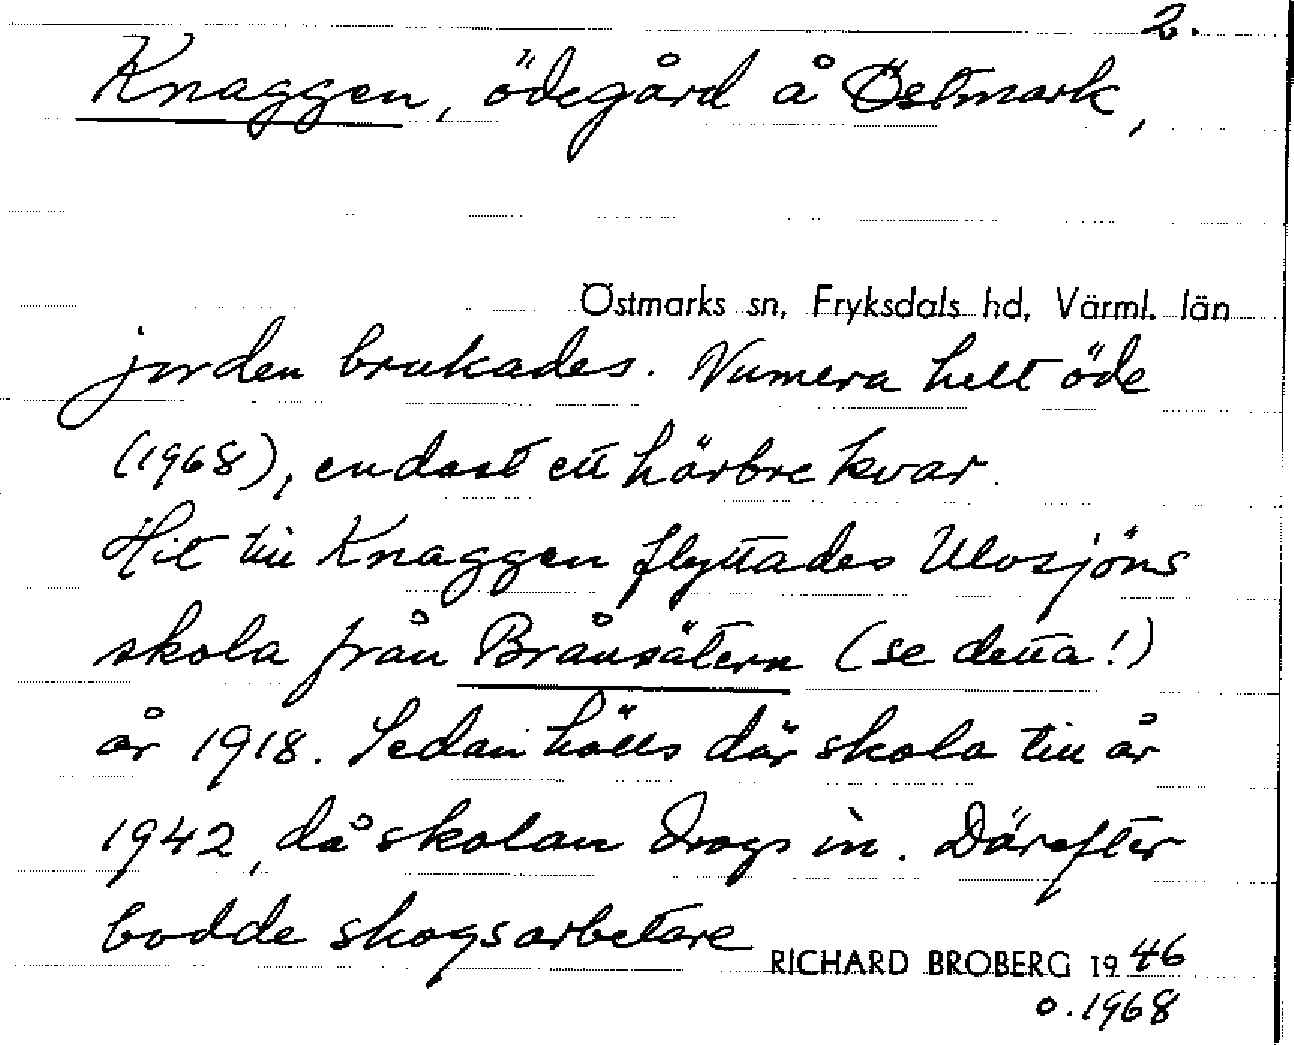 2.
Knaggen, ödegård å Östmark,
Östmarks sn, Fryksdals hd, Värml. län
jorden brukades. Numera helt öde
(1968), endast ett härbre kvar.
Hit till Knaggen flyttades Ulvsjöns
skola från Brånsätern (se detta!)
år 1918. Sedan hölls där skola till år
1942, då skolan drogs in. Därefter
bodde skogsarbetare
RICHARD BROBERG 1946
o. 1968